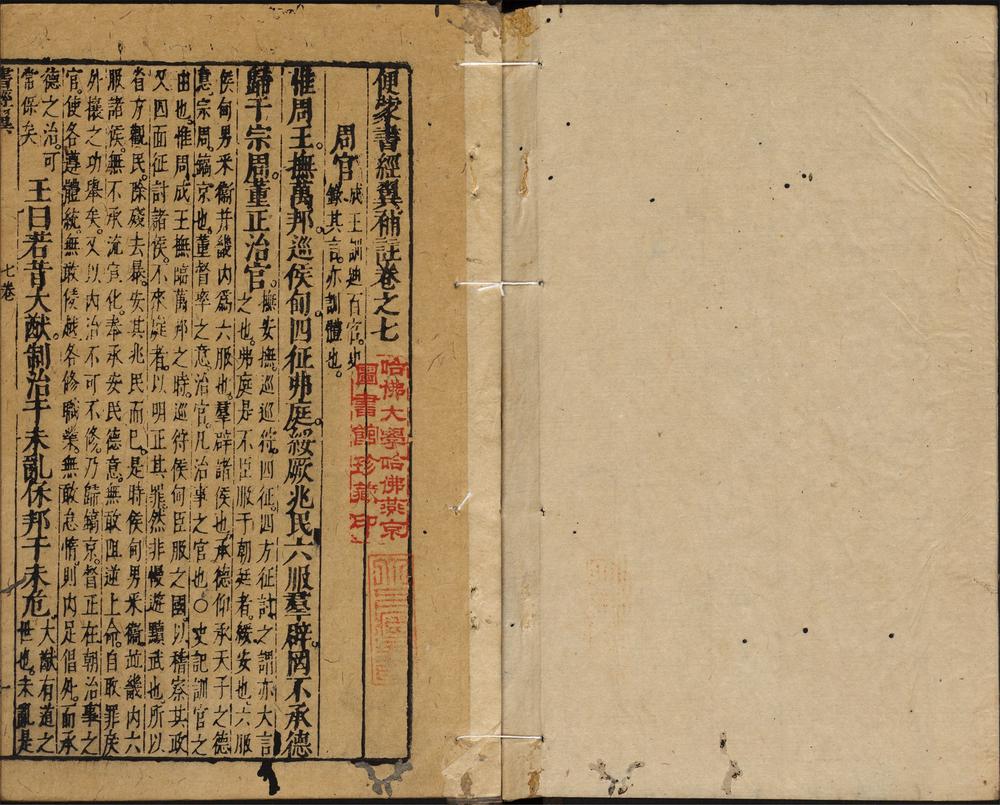 便蒙書經翼補註卷之七
周官 成王訓迪百官史
錄其言亦訓體也。
惟周王。撫萬邦巡侯甸。四征弗庭。綏厥兆民六服羣辟。罔不承德
歸于宗周。董正治官。撫安撫。巡巡狩。四征。四方征討之。謂亦大言
之也。弗庭是不臣服于朝廷者。綏安也。六服
侯甸男采衛并畿內爲六服也。羣辟諸侯也。承德仰承天子之德
意。宗周。鎬京也。董督率之意治官。凡治事之官也○史記訓官之
由也。惟周成王撫臨萬邦之時。巡狩侯甸臣服之國。以稽察其政
又四面征討諸侯。不來庭者。以明正其罪。然非慢遊黷武也。所以
省方觀民。除殘去暴。安其兆民而已。是時侯甸男采衛並畿內六
服諸侯。無不承流宣化。奉承安民德意。無敢阻逆上命。自取罪戾
外攘之功舉矣。又以內治不可不修。乃歸鎬京。督正在朝治事之
官。使各遵體統。無敢侵越。各修職業。無敢怠惰。則內足倡外。而承
德之治。可
常保矣
王曰若昔大猷制治于未亂保邦于未危。
大猷有道之
世也。未亂是
書經翼
七卷
一
哈佛大學哈佛燕京
圖書館珍藏印